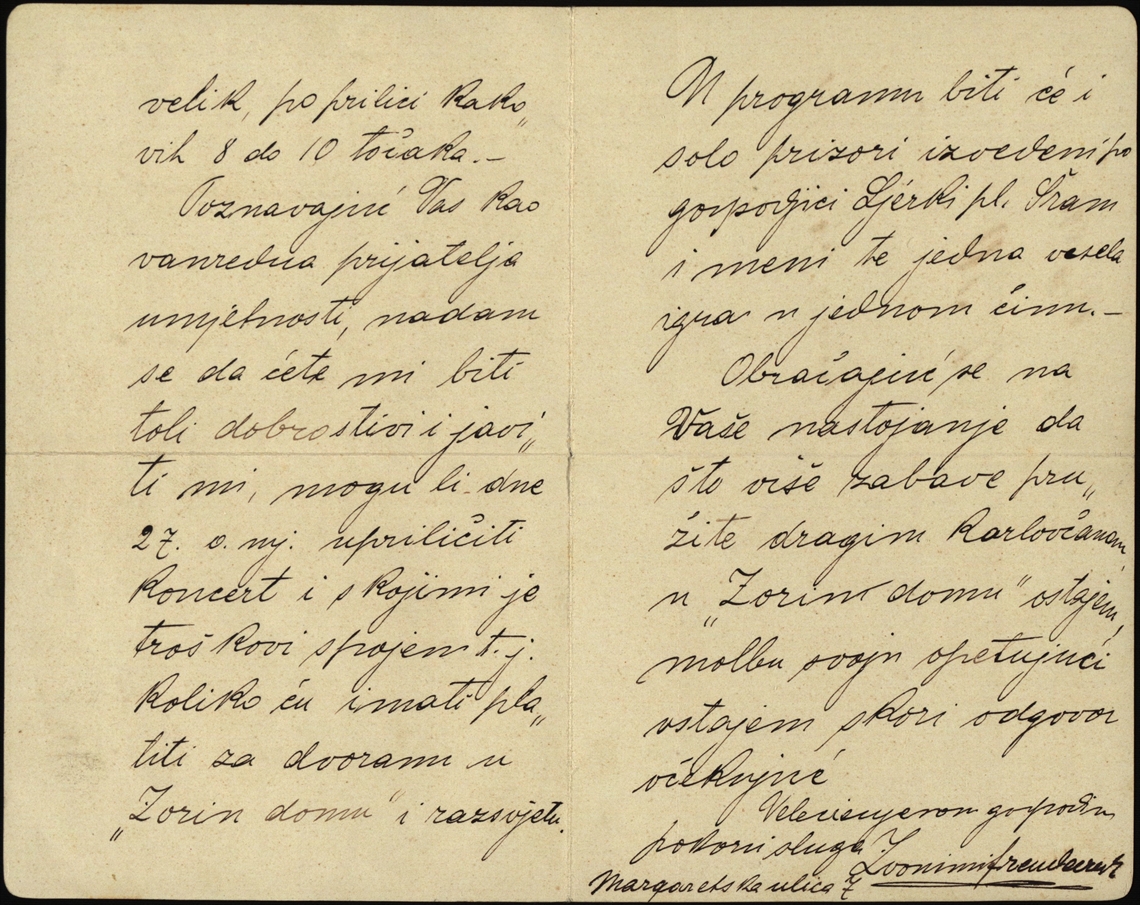 velik, po prilici kako„
vih 8 do 10 točaka.—
Poznavajuć Vas kao
vanredna prijatelja
umjetnosti, nadam
se da ćete mi biti
toli dobrostivi i javi„
ti mi, mogu li dne
27. o. mj. upriličiti
koncert i s kojimi je
troškovi spojen t. j.
koliko ću imati pla„
titi za dvoranu u
„Zorin domu" i razsvjetu.
U programu biti će i
solo prizori izvedeni po
gospodjici Ljerki pl. Šram
i meni te jedna vesela
igra u jednom činu.—
Obraćajuć se na
Vaše nastojanje da
što više zabave pru„
žite dragim Karlovčanom
u „Zorin domu" ostajem,
molbu svoju opetujući
ostajem skori odgovor
očekujuć
Velecijenjenom gospodinu
pokorni sluga Zvonimir
Margaretska ulica 7